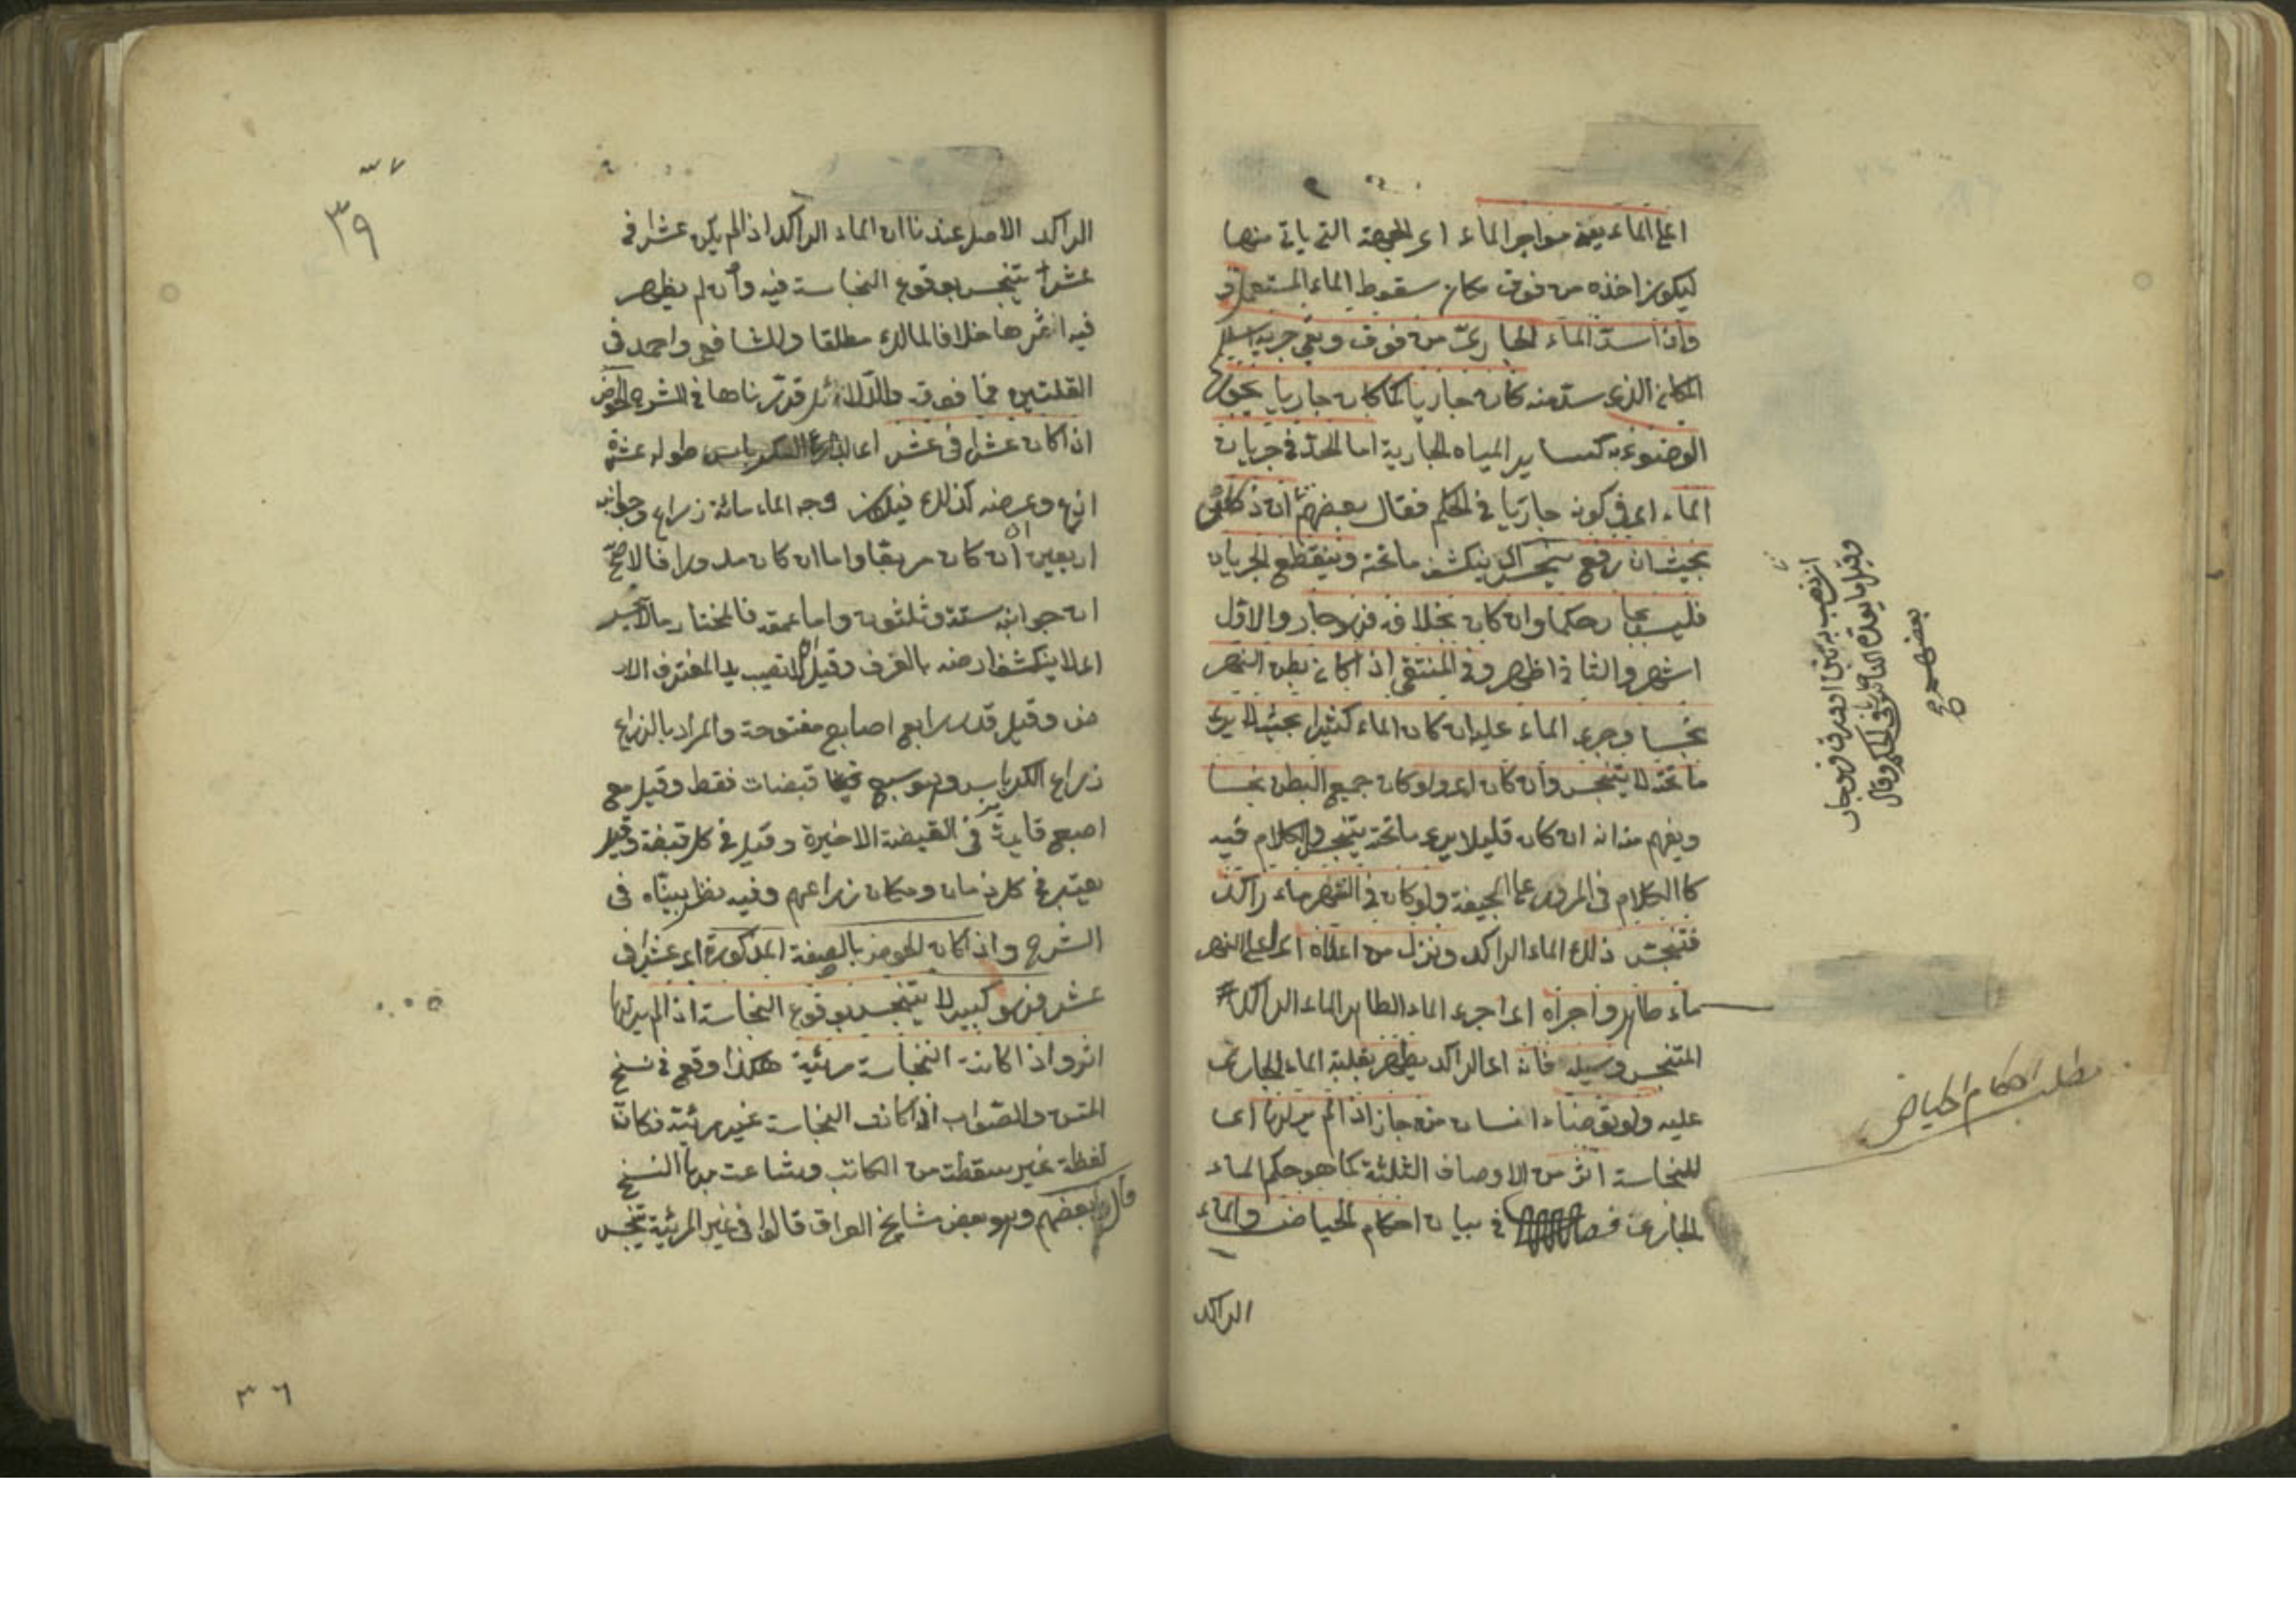 اعلى الماء يعني مواجر الماء اى الجهة التى ياتى منها
ليكون اخذه من فوق مكان سقوط الماء المستعمل
واذا سد الماء الجارى من فوق وبقى جريه اسفل
المكان الذى سد منه كان جاريا كما كان جاريا يجوز
الوضوء به كسائر المياه الجارية اما الحد فى جريان
الماء اى فى كونه جاريا فى الحكم فقال بعضهم ان كان
بحيث ان رفع ينكشف ما تحته وينقطع الجريان
فليس بجار حكما وان كان بخلافه فهو جار والاول
اشهر والثانى اظهر وفى المنتقى اذا كان بطن النهر
نجسا وجرى الماء عليه ان كان الماء كثيرا بحيث لا يرى
ما تحته لا يتنجس وان كان اى ولو كان جميع البطن نجسا
ويفهم منه انه ان كان قليلا يرى ما تحته يتنجس والكلام فيه
كالكلام فى المرور على الجيفة ولو كان فى النهر ماء راكد
فتنجس ذلك الماء الراكد ونزل من اعلاه اى اعلى النهر
ماء طاهر واجراه اى اجرى الماء الطاهر الماء الراكد
المتنجس وسيله فانه اى الراكد يطهر بغلبة الماء الجارى
عليه ولو توضاء انسان منه جاز اذا لم ير لها اى
للنجاسة اثر من الاوصاف الثلثة كما هو حكم الماء
الجارى فصل فى بيان احكام الحياض والماء
الراكد
وقيل ما يعده الناس جاريا وقال
بعضهم
مطلب احكام الحياض
٣٧
٣٩
الراكد الاصل عندنا ان الماء الراكد اذا لم يكن عشرا فى
عشر يتنجس بوقوع النجاسة فيه وان لم يظهر
فيه اثرها خلافا لمالك مطلقا وللشافعى واحمد فى
القلتين فما فوقه والدلائل قررناها فى الشرح الحوض
اذا كان عشرا فى عشر اى بذراع الكرباس طوله عشرة
اذرع وعرضه كذلك فيكون وجه الماء مائة ذراع وجوانبه
اربعين ان كان مربعا واما ان كان مدورا فالاصح
ان جوانبه ستة وثلثون واما عمقه فالمختار ما لا ينحسر
اى لا ينكشف ارضه بالغرف وقيل لا تصيب يد المغترف الار
ض وقيل قدر اربع اصابع مفتوحة والمراد بالذراع
ذراع الكرباس وهو سبع قبضات فقط وقيل مع
اصبع قايمة فى القبضة الاخيرة وقيل فى كل قبضة وقيل
يعتبر فى كل زمان ومكان ذراعهم وفيه نظر بيناه فى
الشرح واذا كان الحوض بالصفة المذكورة اى عشرا فى
عشر فهو كبير لا يتنجس بوقوع النجاسة اذا لم ير لها
اثر واذا كانت النجاسة مرئية هكذا وقع فى نسخ
المتن والصواب اذا كانت النجاسة غير مرئية فكان
لفظة غير سقطت من الكاتب وشاعت بها النسخ
قال بعضهم وهو بعض مشايخ العراق قالوا فى غير المرئية يتنجس
٣٦